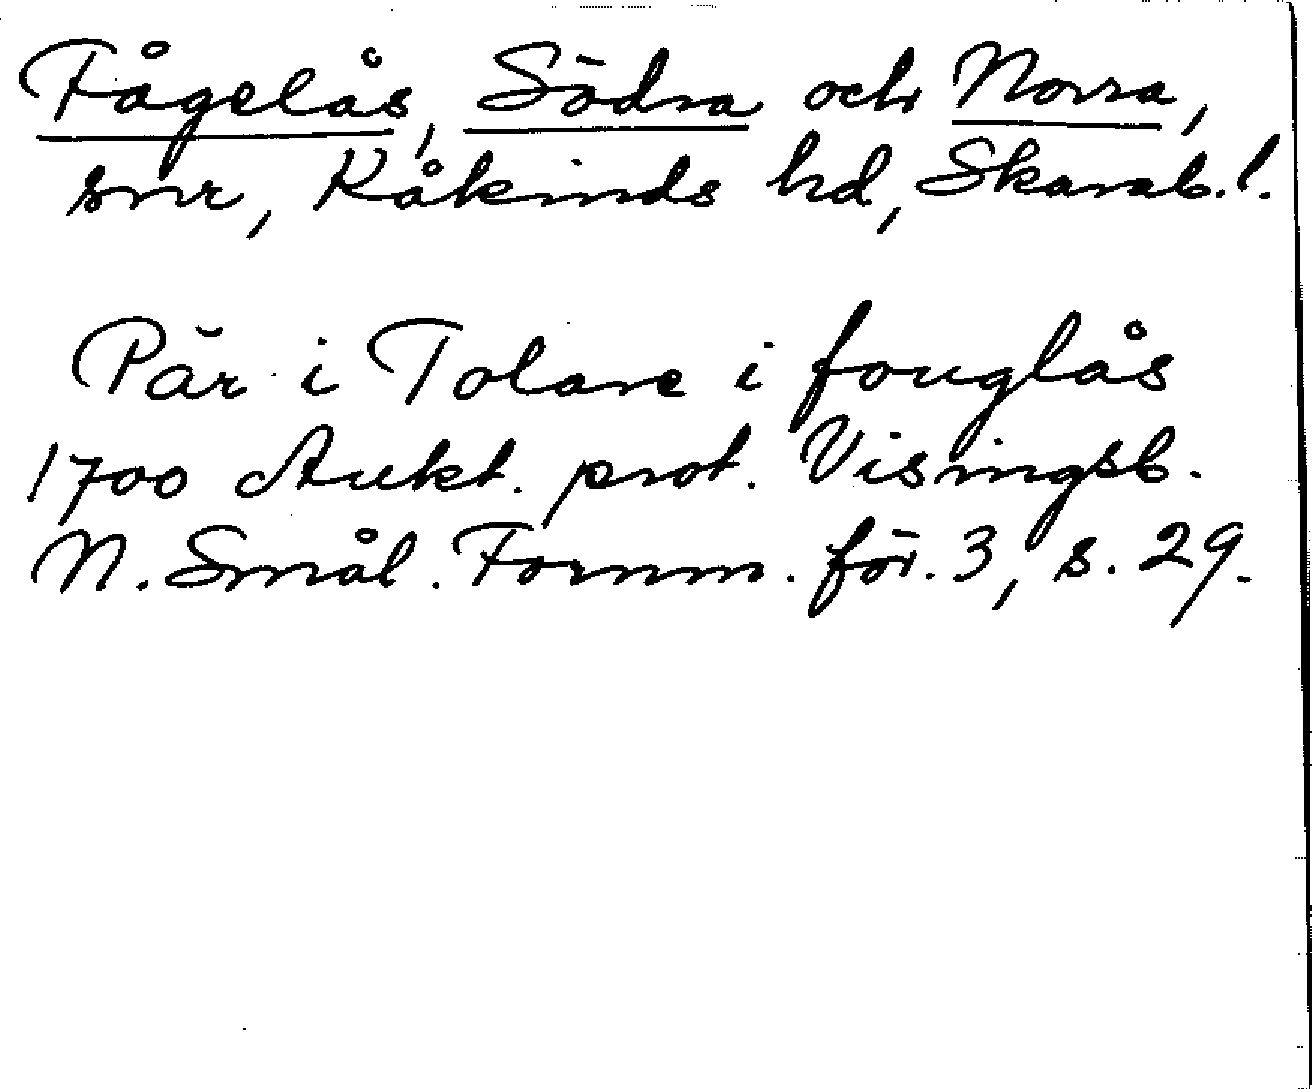 Fågelås, Södra och Norra,
snr, Kåkinds hd, Skarab. l.
Pär i Tolare i fouglås
1700 Aukt. prot. Visingsb.
N. Smål. Fornm. för. 3, s. 29.